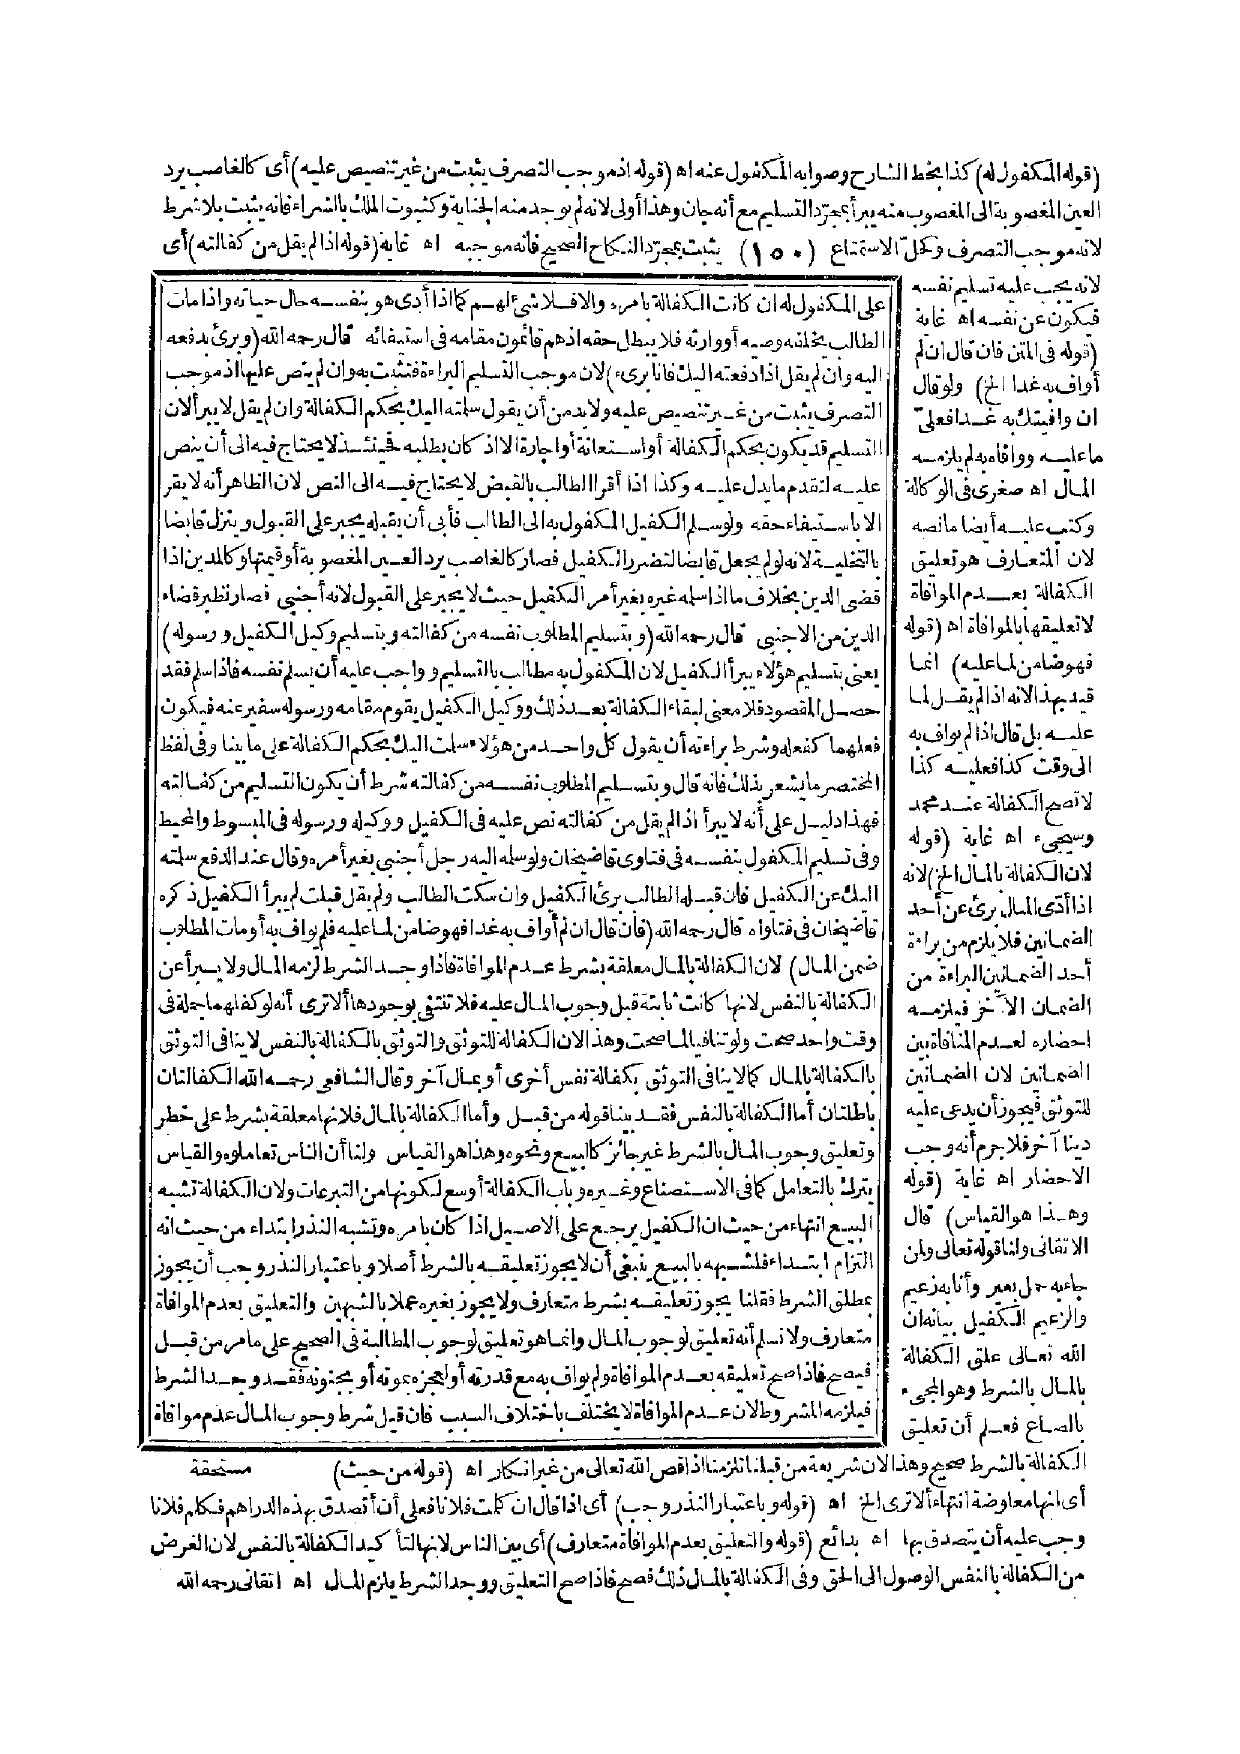 (قوله المكفول له) كذا بخط الشارح وصوابه المكفول عنه اه (قوله اذ موجب التصرف يثبت من غير تنصيص عليه) أى كالغاصب يرد
العين المغصوبة الى المغصوب منه يبرأ بمجرّد التسليم مع أنه جان وهذا أولى لانه لم يوجد منه الجناية وكثبوت الملك بالشراء فانه يثبت بلا شرط
لانه موجب التصرف وكحلّ الاستمتاع (١٥٠) يثبت بمجرّد النكاح الصحيح فانه موجبه اه غاية (قوله اذا لم يقل من كفالته) أى
لانه يجب عليه تسليم نفسه
فيكون عن نفسه اه غاية
(قوله فى المتن فان قال ان لم
أواف به غدا الخ) ولو قال
ان وافيتك به غدا فعلىّ
ما عليه ووافاه به لم يلزمه
المال اه صغرى فى الوكالة
وكتب عليه أيضا ما نصه
لان المتعارف هو تعليق
الكفالة بعدم الموافاة
لا تعليقها بالموافاة اه (قوله
فهو ضامن لما عليه) انما
قيد بهذا لانه اذا لم يقل لما
عليه بل قال اذا لم يواف به
الى وقت كذا فعليه كذا
لا تصح الكفالة عند محمد
وسيجىء اه غاية (قوله
لان الكفالة بالمال الخ) لانه
اذا أدّى المال برئ عن أحد
الضمانين فلا يلزم من براءة
أحد الضمانين البراءة من
الضمان الآخر فيلزمه
احضاره لعدم المنافاة بين
الضمانين لان الضمانين
للتوثق فيجوز أن يدعى عليه
دينا آخر فلا جرم أنه وجب
الاحضار اه غاية (قوله
وهذا هو القياس) قال
الاتقانى ولنا قوله تعالى ولمن
جاء به حمل بعير وأنا به زعيم
والزعيم الكفيل بيانه ان
الله تعالى علق الكفالة
بالمال بالشرط وهو المجىء
بالصاع فعلم أن تعليق
على المكفول له ان كانت الكفالة بامره والا فلا شئ لهم كما اذا أدى هو بنفسه حال حياته واذا مات
الطالب يخلفه وصيه أو وارثه فلا يبطل حقه اذ هم قائمون مقامه فى استيفائه قال رحمه الله (وبرئ بدفعه
اليه وان لم يقل اذا دفعته اليك فانا برىء) لان موجب التسليم البراءة فتثبت به وان لم ينص عليها اذ موجب
التصرف يثبت من غير تنصيص عليه ولا بد من أن يقول سلمته اليك بحكم الكفالة وان لم يقل لا يبرأ لان
التسليم قد يكون بحكم الكفالة أو استعانة أو اجارة الا اذ كان بطلبه فحينئذ لا يحتاج فيه الى أن ينص
عليه لتقدم ما يدل عليه وكذا اذا أقر الطالب بالقبض لا يحتاج فيه الى النص لان الظاهر أنه لا يقر
الا باستيفاء حقه ولو سلم الكفيل المكفول به الى الطالب فأبى أن يقبله يجبر على القبول وينزل قابضا
بالتخلية لانه لو لم يجعل قابضا لتضرر الكفيل فصار كالغاصب يرد العين المغصوبة أو قيمتها وكالمدين اذا
قضى الدين بخلاف ما اذا سلمه غيره بغير أمر الكفيل حيث لا يجبر على القبول لانه أجنبى فصار نظير قضاء
الدين من الاجنبى قال رحمه الله (وبتسليم المطلوب نفسه من كفالته وبتسليم وكيل الكفيل ورسوله)
يعنى بتسليم هؤلاء يبرأ الكفيل لان المكفول به مطالب بالتسليم وواجب عليه أن يسلم نفسه فاذا سلم فقد
حصل المقصود فلا معنى لبقاء الكفالة بعد ذلك ووكيل الكفيل يقوم مقامه ورسوله سفير عنه فيكون
فعلهما كفعله وشرط براءته أن يقول كل واحد من هؤلاء سلمت اليك بحكم الكفالة على ما بينا وفى لفظ
المختصر ما يشعر بذلك فانه قال وبتسليم المطلوب نفسه من كفالته شرط أن يكون التسليم من كفالته
فهذا دليل على أنه لا يبرأ اذا لم يقل من كفالته نص عليه فى الكفيل ووكيله ورسوله فى المبسوط والمحيط
وفى تسليم المكفول بنفسه فى فتاوى قاضيخان ولو سلمه اليه رجل أجنبى بغير أمره وقال عند الدفع سلمته
اليك عن الكفيل فان قبله الطالب برئ الكفيل وان سكت الطالب ولم يقل قبلت لم يبرأ الكفيل ذكره
قاضيخان فى فتاواه قال رحمه الله (فان قال ان لم أواف به غدا فهو ضامن لما عليه فلم يواف به أو مات المطلوب
ضمن المال) لان الكفالة بالمال معلقة بشرط عدم الموافاة فاذا وجد الشرط لزمه المال ولا يبرأ عن
الكفالة بالنفس لانها كانت ثابتة قبل وجوب المال عليه فلا تنتفى بوجودها ألا ترى أنه لو كفلهما جملة فى
وقت واحد صحت ولو تنافيا لما صحت وهذا لان الكفالة للتوثق والتوثق بالكفالة بالنفس لا ينافى التوثق
بالكفالة بالمال كما لا ينافى التوثق بكفالة نفس أخرى أو بمال آخر وقال الشافعى رحمه الله الكفالتان
باطلتان أما الكفالة بالنفس فقد بينا قوله من قبل وأما الكفالة بالمال فلانها معلقة بشرط على خطر
وتعليق وجوب المال بالشرط غير جائز كالبيع ونحوه وهذا هو القياس ولنا أن الناس تعاملوه والقياس
يترك بالتعامل كما فى الاستصناع وغيره وباب الكفالة أوسع لكونها من التبرعات ولان الكفالة تشبه
البيع انتهاء من حيث ان الكفيل يرجع على الاصيل اذا كان بامره وتشبه النذر ابتداء من حيث انه
التزام ابتداء فلشبهه بالبيع ينبغى أن لا يجوز تعليقه بالشرط أصلا وباعتبار النذر وجب أن يجوز
بمطلق الشرط فقلنا يجوز تعليقه بشرط متعارف ولا يجوز بغيره عملا بالشبهين والتعليق بعدم الموافاة
متعارف ولا نسلم أنه تعليق لوجوب المال وانما هو تعليق لوجوب المطالبة فى الصحيح على ما مر من قبل
فيصح فاذا صح تعليقه بعدم الموافاة ولم يواف به مع قدرته أو لعجزه بموته أو بجنونه فقد وجد الشرط
فيلزمه المشروط لان عدم الموافاة لا يختلف باختلاف السبب فان قيل شرط وجوب المال عدم موافاة
الكفالة بالشرط صحيح وهذا لان شريعة من قبلنا تلزمنا اذا قص الله تعالى من غير انكار اه (قوله من حيث) مستحقة
أى انها معاوضة انتهاء ألا ترى الخ اه (قوله وباعتبار النذر وجب) أى اذا قال ان كلمت فلانا فعلى أن أتصدق بهذه الدراهم فكلم فلانا
وجب عليه أن يتصدق بها اه بدائع (قوله والتعليق بعدم الموافاة متعارف) أى بين الناس لانها لتأكيد الكفالة بالنفس لان الغرض
من الكفالة بالنفس الوصول الى الحق وفى الكفالة بالمال ذلك فصح فاذا صح التعليق ووجد الشرط يلزم المال اه اتقانى رحمه الله